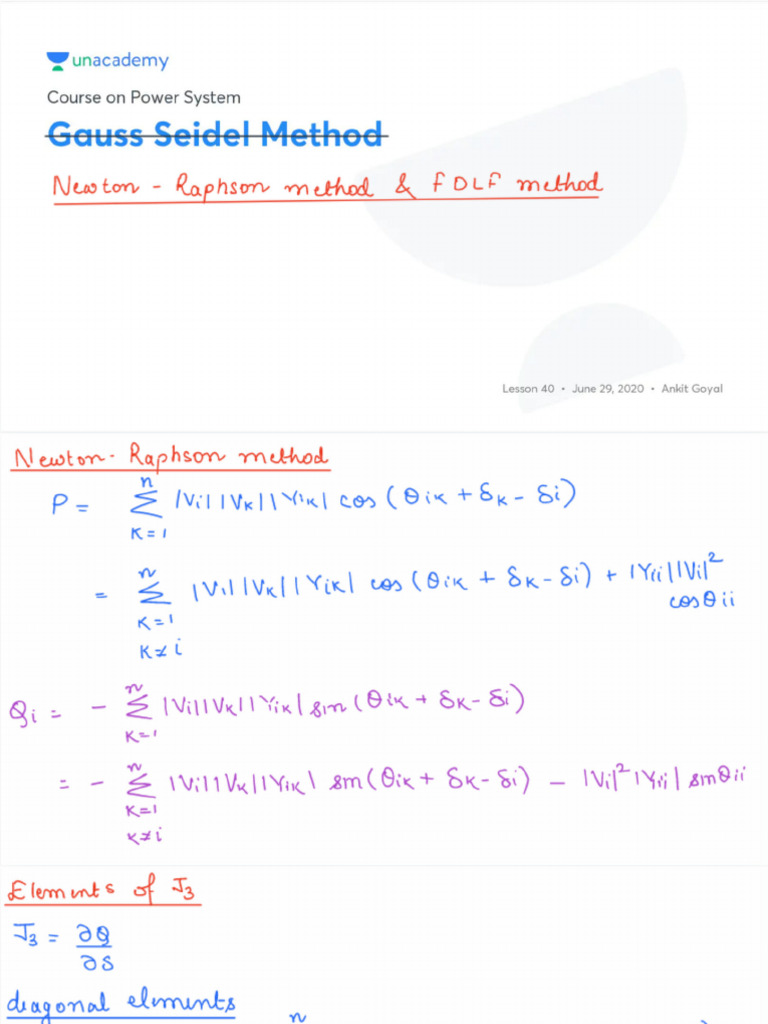 unacademy
Course on Power System
Gauss Seidel Method
Newton - Raphson method & FDLF method
Lesson 40 • June 29, 2020 • Ankit Goyal
Newton-Raphson method
P = n∑K=1 |Vi||VK||YiK| cos(θiK + δK - δi)
= n∑K=1 K≠i |Vi||VK||YiK| cos(θiK + δK - δi) + |Yii||Vi|² cosθii
Qi = - n∑K=1 |Vi||VK||YiK| sin(θiK + δK - δi)
= - n∑K=1 K≠i |Vi||VK||YiK| sin(θiK + δK - δi) - |Vi|²|Yii| sinθii
Elements of J3
J3 = ∂Q/∂δ
diagonal elements
n